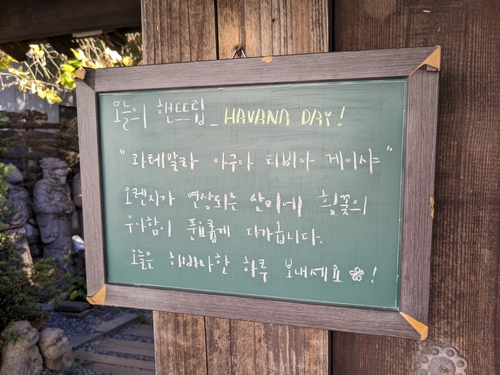 오늘의 핸드드립_ HAVANA DAY!
"과테말라 아구아 티비아 게이샤="
오렌지가 연상되는 산미에 흰꽃의
우아함이 풍요롭게 다가옵니다.
오늘은 해바나할 하루 보내세요!